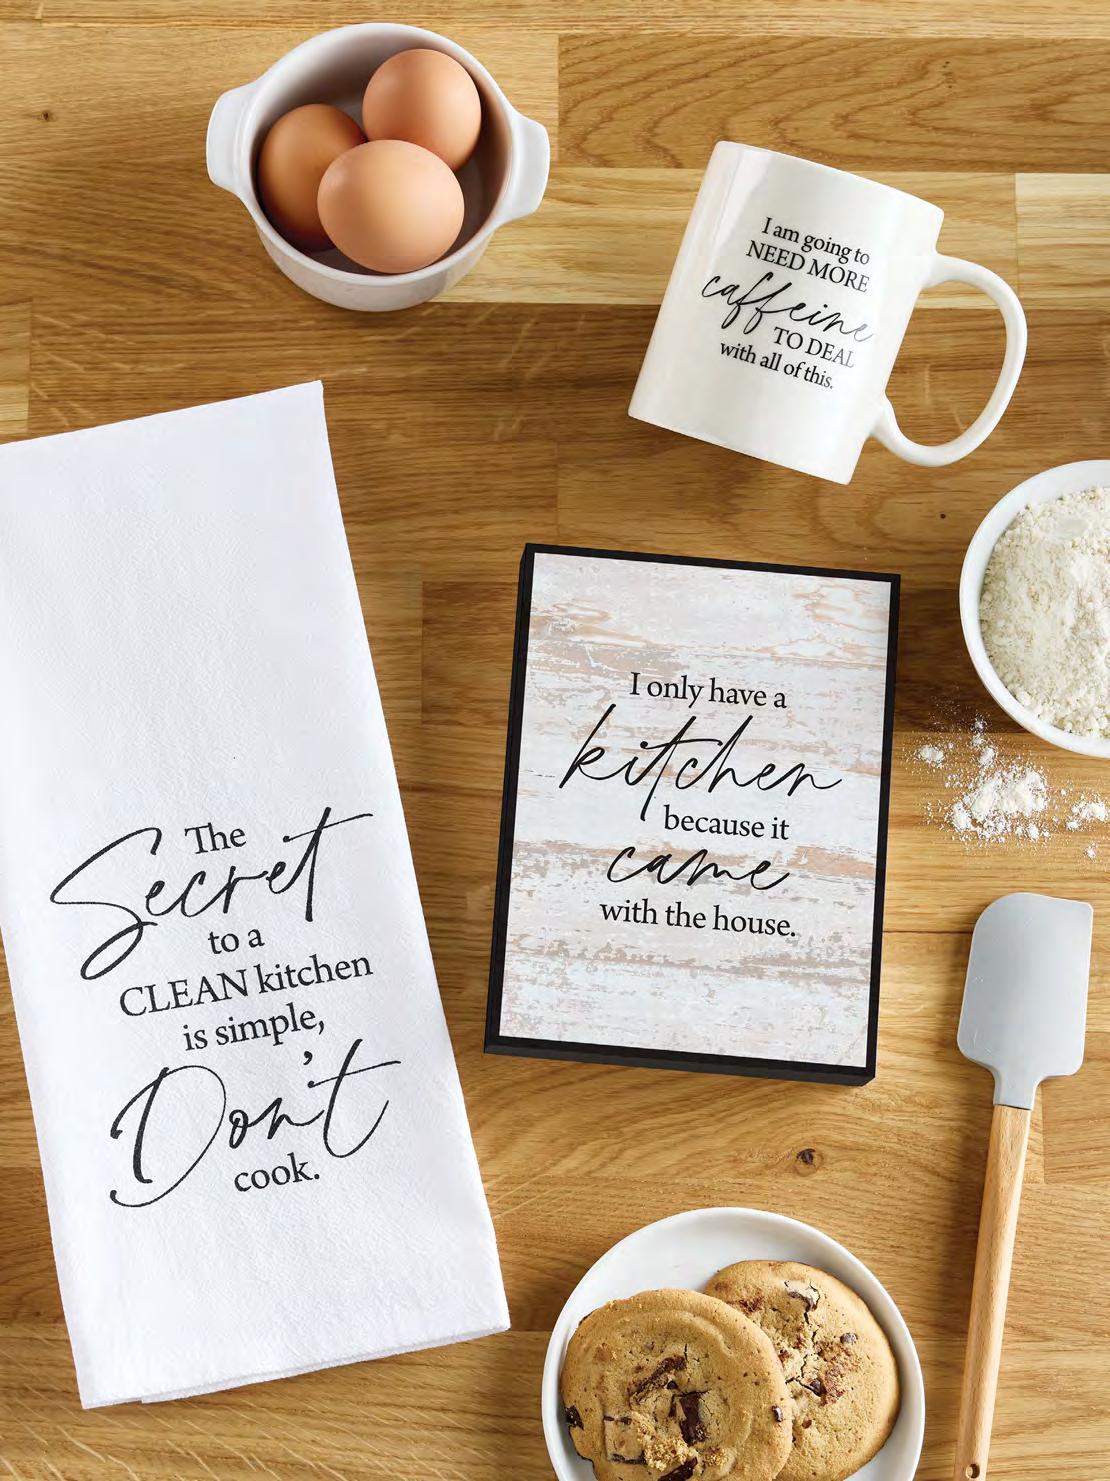 I am going to
NEED MORE
caffeine
TO DEAL
with all of this.
I only have a
kitchen
because it
came
with the house.
The
Secret
to a
CLEAN kitchen
is simple,
Don't
cook.